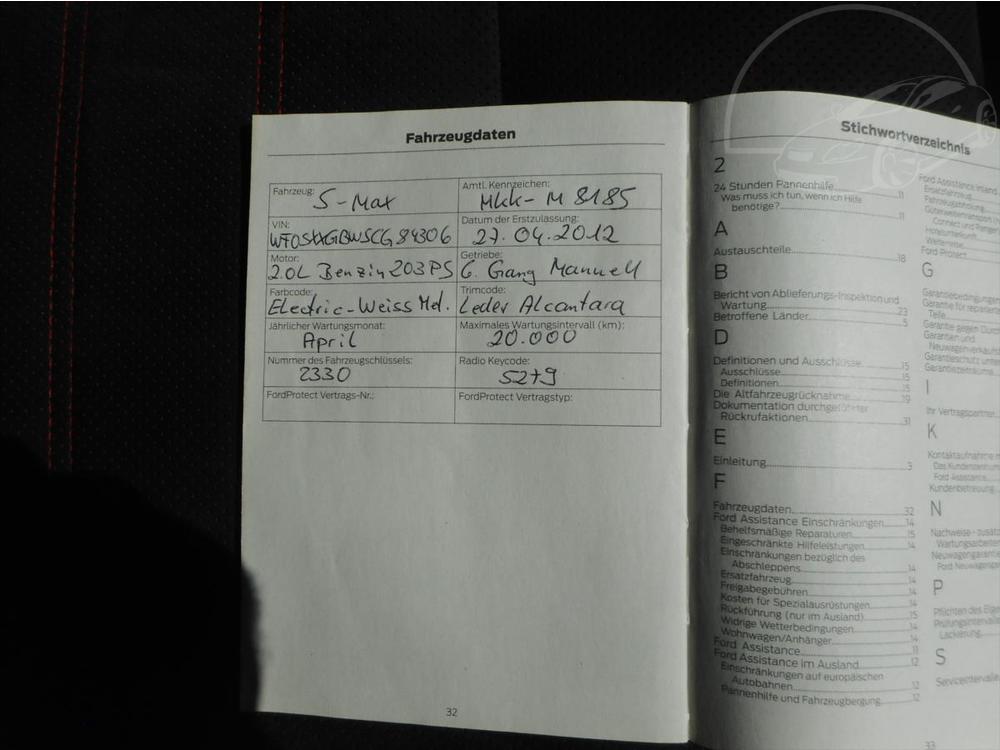 Fahrzeugdaten
Fahrzeug:
S-Max
Amtl. Kennzeichen:
MKK-M 8185
VIN:
WF0SXXGBWSCG84306
Datum der Erstzulassung:
27.04.2012
Motor:
2.0L Benzin 203 PS
Getriebe:
6. Gang Manuell
Farbcode:
Electric-Weiss Met.
Trimcode:
Leder Alcantara
Jährlicher Wartungsmonat:
April
Maximales Wartungsintervall (km):
20.000
Nummer des Fahrzeugschlüssels:
2330
Radio Keycode:
5279
FordProtect Vertrags-Nr.:
FordProtect Vertragstyp:
32
Stichwortverzeichnis
2
24 Stunden Pannenhilfe 11
Was muss ich tun, wenn ich Hilfe
benötige? 11
A
Austauschteile 18
B
Bericht von Ablieferungs-Inspektion und
Wartung 23
Betroffene Länder 5
D
Definitionen und Ausschlüsse 15
Ausschlüsse 15
Definitionen 15
Die Altfahrzeugrücknahme 19
Dokumentation durchgeführter
Rückrufaktionen 31
E
Einleitung 3
F
Fahrzeugdaten 32
Ford Assistance Einschränkungen 14
Behelfsmäßige Reparaturen 15
Eingeschränkte Hilfeleistungen 14
Einschränkungen bezüglich des
Abschleppens 14
Ersatzfahrzeug 14
Freigabegebühren 14
Kosten für Spezialausrüstungen 14
Rückführung (nur im Ausland) 15
Widrige Wetterbedingungen 14
Wohnwagen/Anhänger 14
Ford Assistance 11
Ford Assistance im Ausland 12
Einschränkungen auf europäischen
Autobahnen 12
Pannenhilfe und Fahrzeugbergung 12
Ford Assistance Inland
Ersatzfahrzeug
Fahrzeugabholung
Gütertransport
Connect und Ranger
Hotelunterkunft
Weiterreise
Ford Protect
G
Garantiebedingungen
Garantie für reparierte
Teile
Garantie gegen Durch
Garantien und
Neuwagenverkaufs
Garantieschutz
Garantiezeiträume
I
Ihr Vertragspartner
K
Kontaktaufnahme m
Das Kundenzentrum
Ford Assistance
Kundenbetreuung
N
Nachweise - zusätz
Wartungsarbeiten
Neuwagengarantie
Ford Neuwagen
P
Pflichten des Eigen
Prüfungsintervalle
Lackierung
S
Serviceintervalle
33